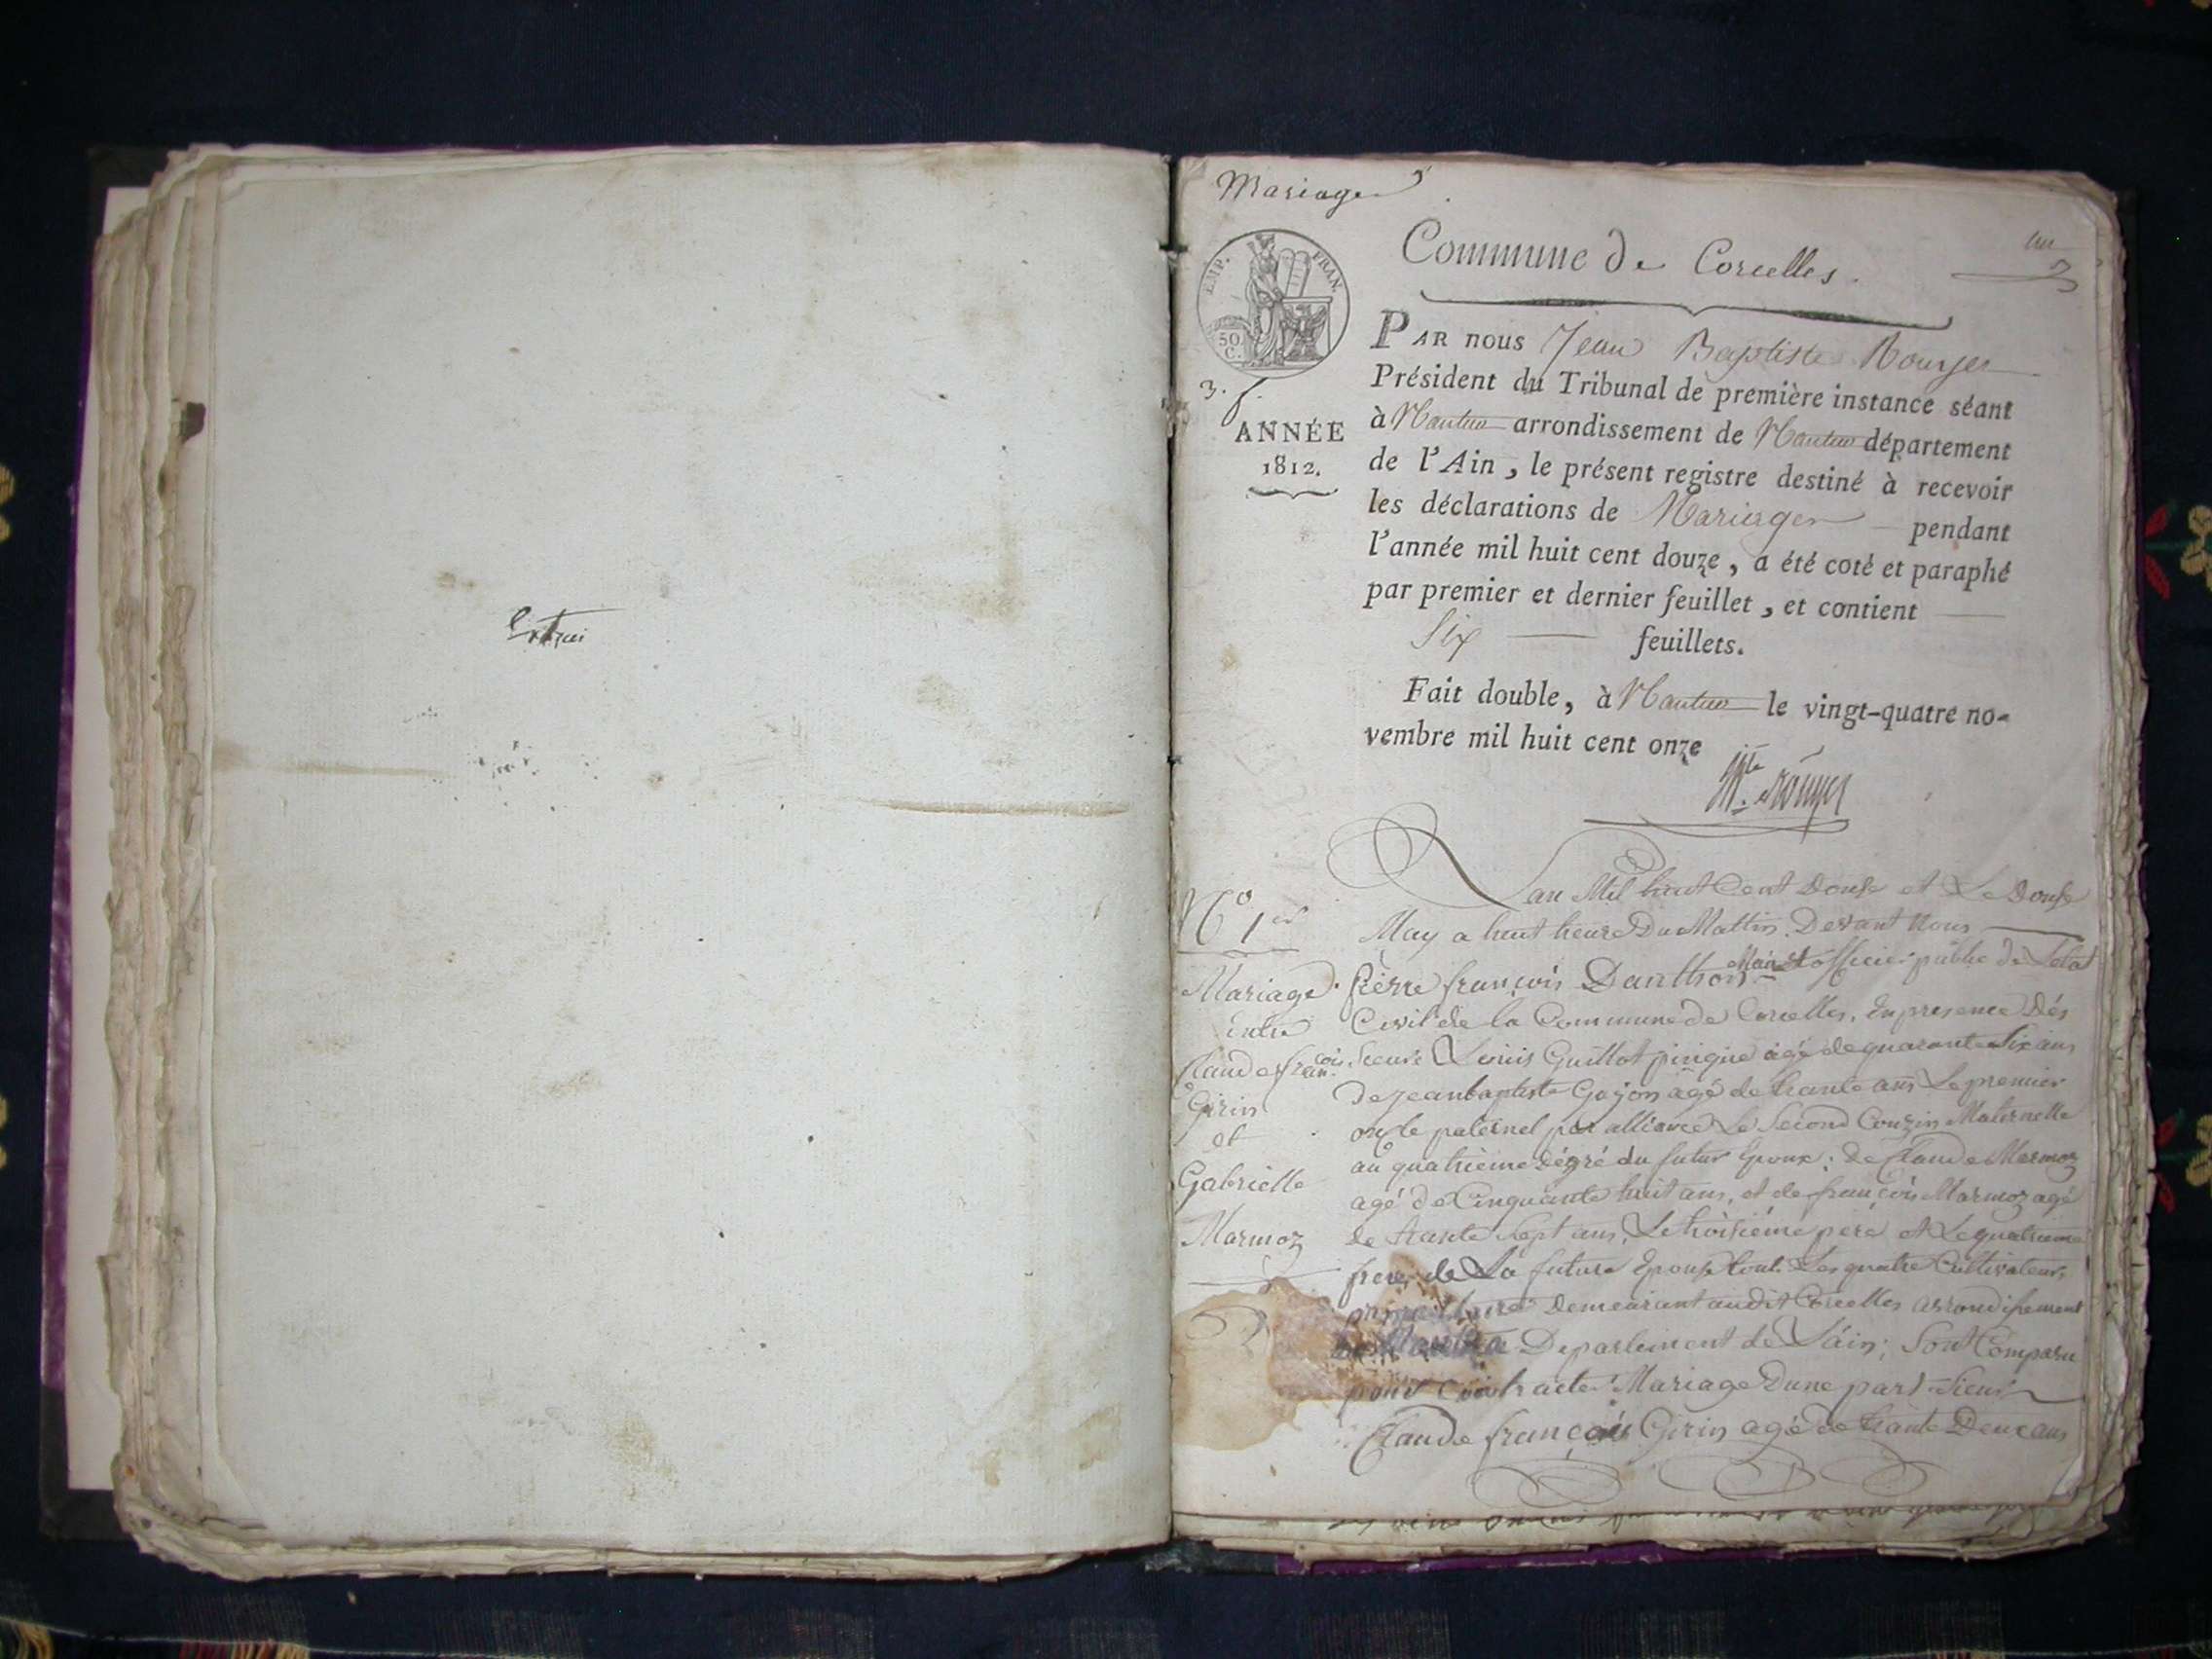 Mariage
Commune de Corcelles.
un
EMP. FRAN.
50
C.
3. f.
ANNÉE
1812.
PAR nous Jean Baptiste Rouyer
Président du Tribunal de première instance séant
à Nantua arrondissement de Nantua département
de l'Ain, le présent registre destiné à recevoir
les déclarations de Mariages pendant
l'année mil huit cent douze, a été coté et paraphé
par premier et dernier feuillet, et contient
Six feuillets.
Fait double, à Nantua le vingt-quatre no-
vembre mil huit cent onze
Rouyer
N° 1er
Mariage
Entre
Claude françois
Girin
et
Gabrielle
Marmoz
Lan Mil huit Cent Douse et Le Douse
May a huit heure Du Mattin. Devant Nous
pierre françois Danthon Maire et officier public de Letat
Civil de la Commune de Corcelles, En presence Dés
Sieurs Louis Guillot pingue agé de quarante Six ans
de jeanbaptiste Gojon agé de trante ans Le premier
oncle paternel par alliance Le Second Couzin Maternelle
au quatrieme dégré du futur Epoux; de Claude Marmoz
agé de Cinquante huit ans, et de françois Marmoz agé
de trante Sept ans, Le troisiéme pere et Le quatrieme
frere de La future Epouse tout Les quatre Cultivateurs
proprietaire Demeurant audit Corcelles arrondissement
de Nantua Departement de Láin; Sont Comparu
pour Contracter Mariage Dune part Sieur
Claude françois Girin agé de trante Deux ans